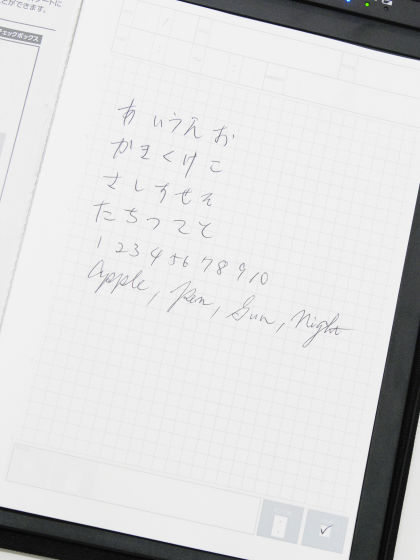 ートに
とができます。
チェックボックス
あいうえお
かきくけこ
さしすせそ
たちつてと
1 2 3 4 5 6 7 8 9 10
Apple, Pen, Sun, Night